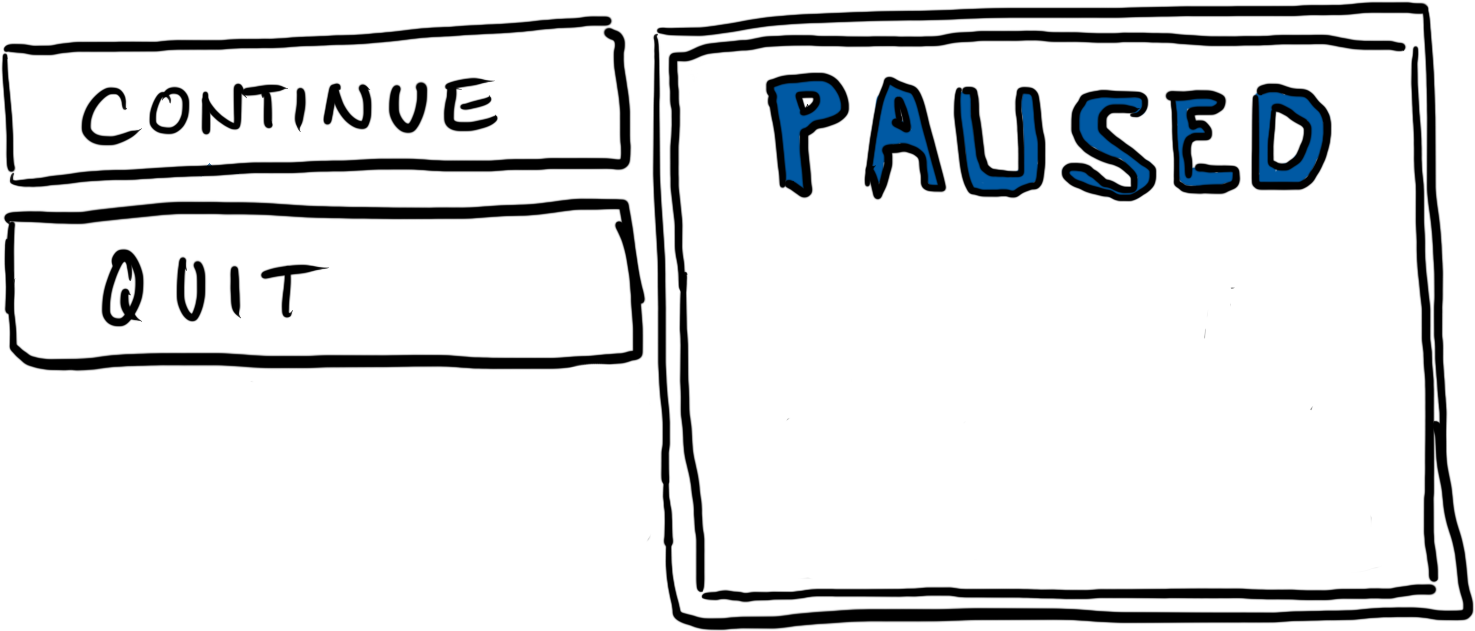 CONTINUE
QUIT
PAUSED